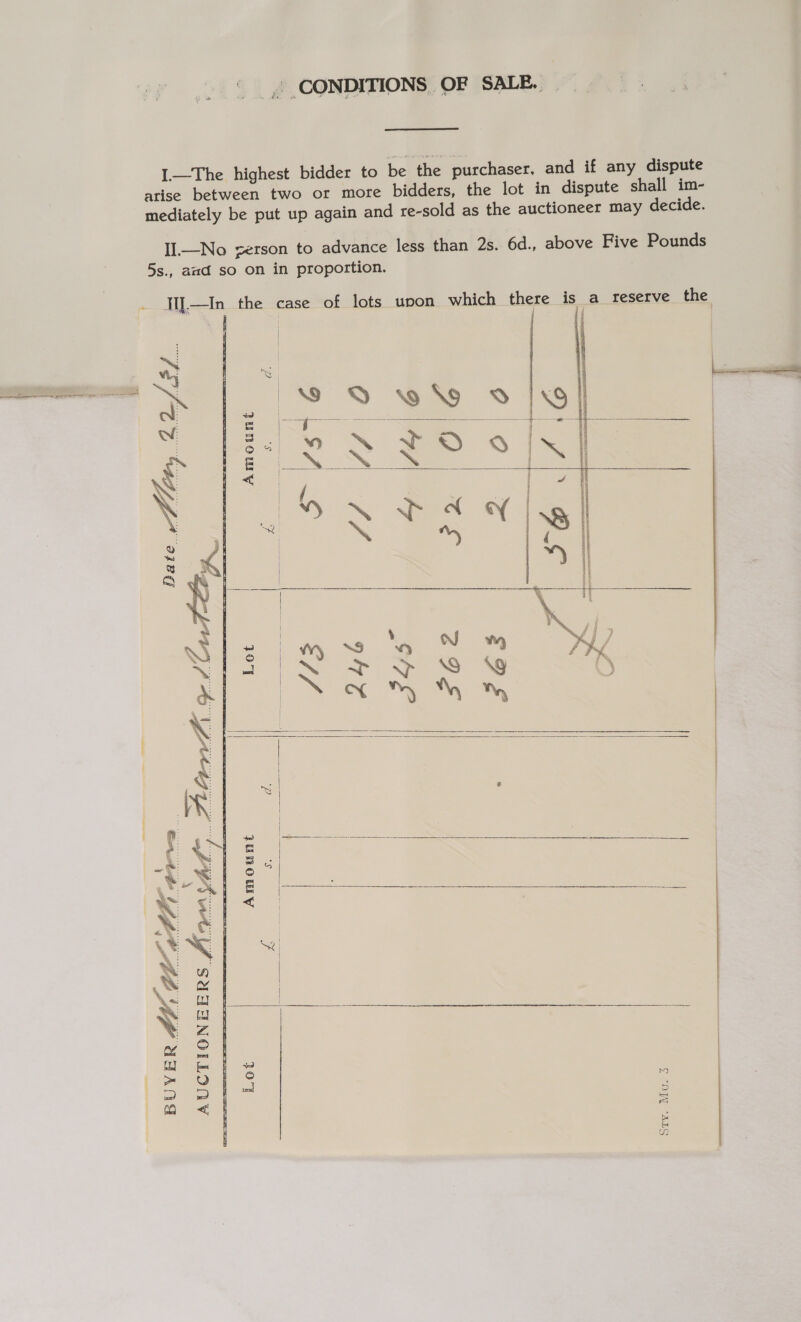 CONDITIONS OF SALE.
I.—The highest bidder to be the purchaser, and if any dispute
arise between two or more bidders, the lot in dispute shall im-
mediately be put up again and re-sold as the auctioneer may decide.
II.—No person to advance less than 2s. 6d., above Five Pounds
5s., and so on in proportion.
III.—In the case of lots upon which there is a reserve the
BUYER Date May 22/31
AUCTIONEERS Knight, Frank & Rutley
Lot Amount Lot Amount
£ s. d. £ s. d.
113 5 15 6
246 11 11 0
345 4 14 6
362 32 0 6
363 2 0 0
56. 1. 6
Sty. Mu. 3